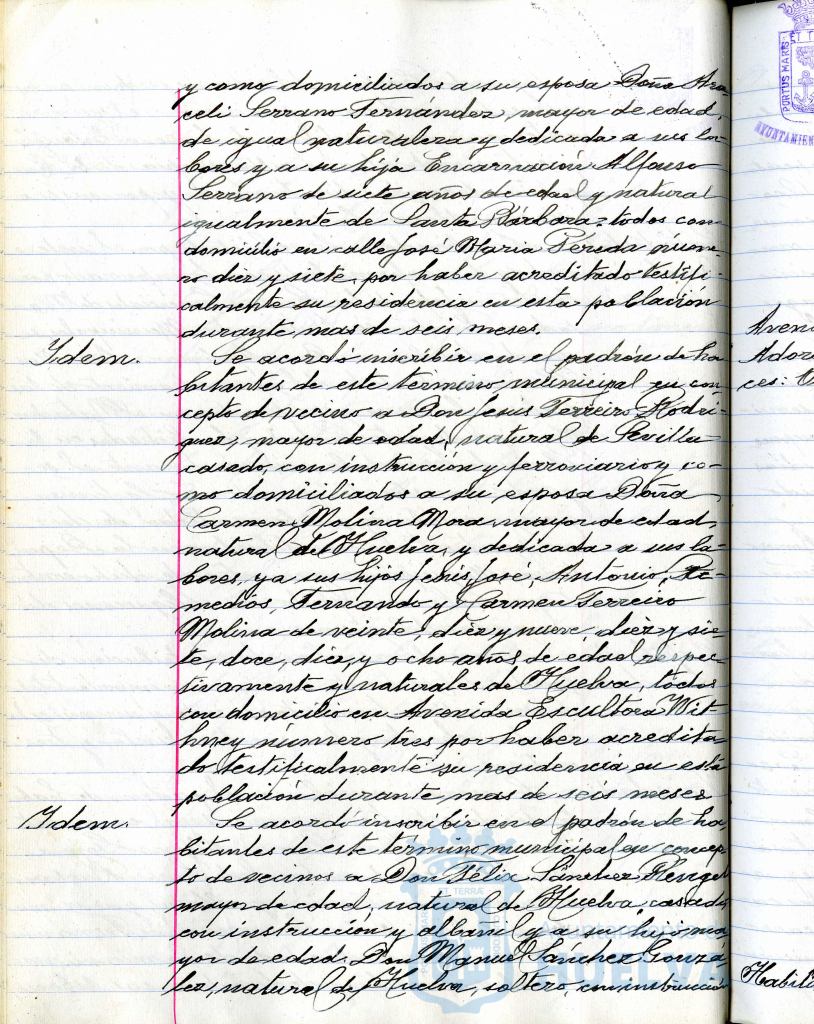 y como domiciliados a su esposa Doña Ara-
celi Serrano Fernández, mayor de edad,
de igual naturaleza y dedicada a sus la-
bores y a su hija Encarnación Alfonso
Serrano de siete años de edad y natural
igualmente de Santa Bárbara = todos con
domicilio en calle José Maria Pereda núme-
ro diez y siete, por haber acreditado testifi-
calmente su residencia en esta población
durante mas de seis meses.
Idem.
Se acordó inscribir en el padrón de ha-
bitantes de este termino municipal en con-
cepto de vecino a Don Jesús Ferreiro Rodri-
guez, mayor de edad, natural de Sevilla
casado, con instrucción y ferroviario y co-
mo domiciliados a su esposa Doña
Carmen Molina Mora, mayor de edad,
natural de Huelva, y dedicada a sus la-
bores, y a sus hijos Jesús, José, Antonio, Re-
medios, Fernando y Carmen Ferreiro
Molina de veinte, diez y nueve, diez y sie-
te, doce, diez, y ocho años de edad respec-
tivamente y naturales de Huelva, todos
con domicilio en Avenida Escultora Wit-
hney número tres por haber acredita-
do testificalmente su residencia en esta
población durante mas de seis meses
Idem.
Se acordó inscribir en el padrón de ha-
bitantes de este término municipal en concep-
to de vecinos a Don Félix Sánchez
mayor de edad, natural de Huelva, casado
con instrucción y albañil y a su hijo ma-
yor de edad Don Manuel Sánchez Gonzá-
lez, natural de Huelva, soltero, con instrucción
PORTUS MARIS ET T
AYUNTAMIEN
Aven
Ador
ces:
Habili
PORTUS MARIS ET TERRÆ CUSTODIA
HUELVA